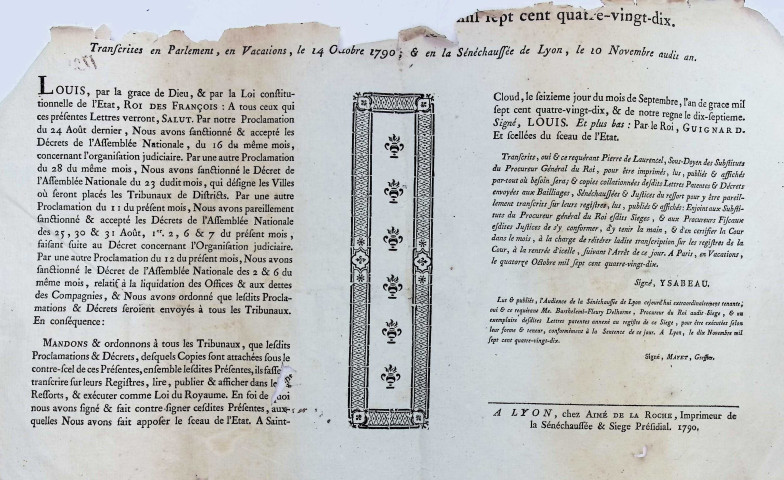 sept cent quatre-vingt-dix.
Transcrites en Parlement, en Vacations, le 14 Octobre 1790; & en la Sénéchaussée de Lyon, le 10 Novembre audit an.
LOUIS, par la grace de Dieu, & par la Loi constitu-
tionnelle de l'Etat, ROI DES FRANÇOIS : A tous ceux qui
ces présentes Lettres verront, SALUT. Par notre Proclamation
du 24 Août dernier, Nous avons sanctionné & accepté les
Décrets de l'Assemblée Nationale, du 16 du même mois,
concernant l'organisation judiciaire. Par une autre Proclamation
du 28 du même mois, Nous avons sanctionné le Décret de
l'Assemblée Nationale du 23 dudit mois, qui désigne les Villes
où seront placés les Tribunaux de Districts. Par une autre
Proclamation du 11 du présent mois, Nous avons pareillement
sanctionné & accepté les Décrets de l'Assemblée Nationale
des 25, 30 & 31 Août, 1er. 2, 6 & 7 du présent mois,
faisant suite au Décret concernant l'Organisation judiciaire.
Par une autre Proclamation du 12 du présent mois, Nous avons
sanctionné le Décret de l'Assemblée Nationale des 2 & 6 du
même mois, relatif à la liquidation des Offices & aux dettes
des Compagnies, & Nous avons ordonné que lesdits Procla-
mations & Décrets seroient envoyés à tous les Tribunaux.
En conséquence :
MANDONS & ordonnons à tous les Tribunaux, que lesdits
Proclamations & Décrets, desquels Copies sont attachées sous le
contre-scel de ces Présentes, ensemble lesdites Présentes, ils fasse
transcrire sur leurs Registres, lire, publier & afficher dans le
Ressorts, & exécuter comme Loi du Royaume. En foi de quoi
nous avons signé & fait contre-signer cesdites Présentes, aux-
quelles Nous avons fait apposer le sceau de l'Etat. A Saint-
Cloud, le seizieme jour du mois de Septembre, l'an de grace mil
sept cent quatre-vingt-dix, & de notre regne le dix-septieme.
Signé, LOUIS. Et plus bas : Par le Roi, GUIGNARD.
Et scellées du sceau de l'Etat.
Transcrite, oui & ce requérant Pierre de Laurencel, Sous-Doyen des Substituts
du Procureur Général du Roi, pour être imprimés, lus, publiés & affichés
par-tout où besoin sera; & copies collationnées desdites Lettres Patentes & Décrets
envoyées aux Bailliages, Sénéchaussées & Justices du ressort pour y être pareil-
lement transcrits sur leurs registres, lus, publiés & affichés: Enjoint aux Substi-
tuts du Procureur général du Roi esdits Sieges, & aux Procureurs Fiscaux
esdites Justices de s'y conformer, d'y tenir la main, & d'en certifier la Cour
dans le mois, à la charge de réitérer ladite transcription sur les registres de la
Cour, à la rentrée d'icelle, suivant l'Arrêt de ce jour. A Paris, en Vacations,
le quatorze Octobre mil sept cent quatre-vingt-dix.
Signé, YSABEAU.
Lus & publiés, l'Audience de la Sénéchaussée de Lyon cejourd'hui extraordinairement tenante;
oui & ce requérant Me. Barthelemi-Fleury Delhorme, Procureur du Roi audit Siege, & un
exemplaire desdites Lettres patentes annexé au registre de ce Siege, pour être exécutées selon
leur forme & teneur, conformément à la Sentence de ce jour. A Lyon, le dix Novembre mil
sept cent quatre-vingt-dix.
Signé, MAYET, Greffier.
A LYON, chez AIMÉ DE LA ROCHE, Imprimeur de
la Sénéchaussée & Siege Présidial. 1790.